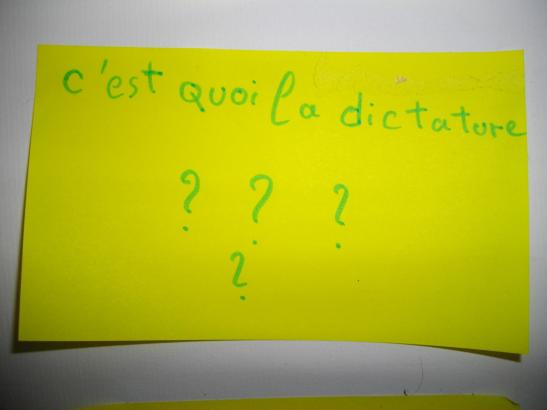 c'est quoi la dictature
? ? ?
?